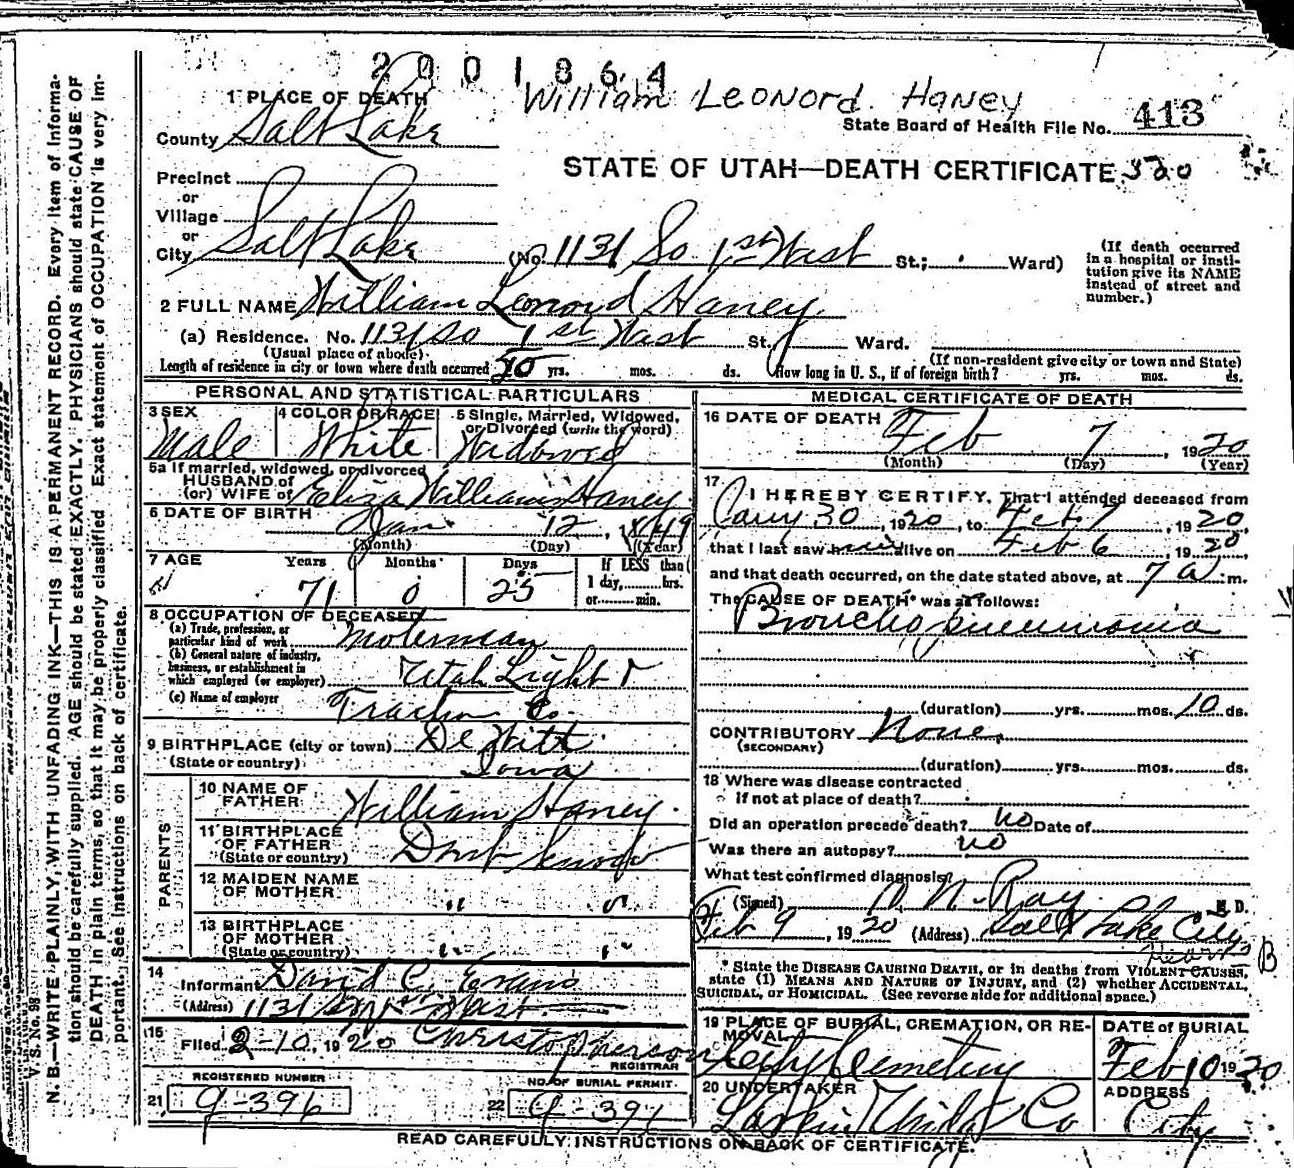 2001864
William Leonord Haney
1 PLACE OF DEATH
State Board of Health File No. 413
County Salt Lake
STATE OF UTAH—DEATH CERTIFICATE 320
Precinct
or
Village
or
City Salt Lake (No. 1131 So 1st West St.; Ward)
(If death occurred in a hospital or institution give its NAME instead of street and number.)
2 FULL NAME William Leonord Haney
(a) Residence. No. 1131 So 1st West St. Ward.
(Usual place of abode) (If non-resident give city or town and State)
Length of residence in city or town where death occurred yrs. mos. ds. How long in U. S., if of foreign birth? yrs. mos. ds.
PERSONAL AND STATISTICAL PARTICULARS
3 SEX Male
4 COLOR OR RACE White
5 Single, Married, Widowed, or Divorced (write the word) Widowed
5a If married, widowed, or divorced
HUSBAND of
(or) WIFE of Eliza Williams Haney
6 DATE OF BIRTH Jan 12, 1849
(Month) (Day) (Year)
7 AGE Years Months Days If LESS than
71 0 25 1 day, hrs.
or min.
8 OCCUPATION OF DECEASED
(a) Trade, profession, or particular kind of work Moterman
(b) General nature of industry, business, or establishment in which employed (or employer) Utah Light &
(c) Name of employer Traction Co.
9 BIRTHPLACE (city or town) De Witt
(State or country) Iowa
PARENTS
10 NAME OF FATHER William Haney
11 BIRTHPLACE OF FATHER (State or country) Don't know
12 MAIDEN NAME OF MOTHER " "
13 BIRTHPLACE OF MOTHER (State or country) " "
14
Informant David C. Evans
(Address) 1131 So 1st West
15
Filed 2-10, 1920 Christopherson
REGISTRAR
REGISTERED NUMBER
21 9-396
NO. OF BURIAL PERMIT.
22 9-391
MEDICAL CERTIFICATE OF DEATH
16 DATE OF DEATH Feb 7, 1920
(Month) (Day) (Year)
17 I HEREBY CERTIFY, That I attended deceased from
Jany 30, 1920, to Feb 7, 1920,
that I last saw him alive on Feb 6, 1920,
and that death occurred, on the date stated above, at 7 a m.
The CAUSE OF DEATH* was as follows:
Broncho pneumonia
(duration) yrs. mos. 10 ds.
CONTRIBUTORY None.
(SECONDARY)
(duration) yrs. mos. ds.
18 Where was disease contracted
if not at place of death?
Did an operation precede death? no Date of
Was there an autopsy? no
What test confirmed diagnosis?
(Signed) N. Ray M. D.
Feb 9, 1920 (Address) Salt Lake City
B
* State the DISEASE CAUSING DEATH, or in deaths from VIOLENT CAUSES, state (1) MEANS AND NATURE OF INJURY, and (2) whether ACCIDENTAL, SUICIDAL, or HOMICIDAL. (See reverse side for additional space.)
19 PLACE OF BURIAL, CREMATION, OR REMOVAL City Cemetery
DATE of BURIAL Feb 10 1920
20 UNDERTAKER Larkin Co
ADDRESS City
READ CAREFULLY INSTRUCTIONS ON BACK OF CERTIFICATE.
N. B.—WRITE PLAINLY, WITH UNFADING INK—THIS IS A PERMANENT RECORD. Every item of information should be carefully supplied. AGE should be stated EXACTLY. PHYSICIANS should state CAUSE OF DEATH in plain terms, so that it may be properly classified. Exact statement of OCCUPATION is very important. See instructions on back of certificate.
V. S. No. 98